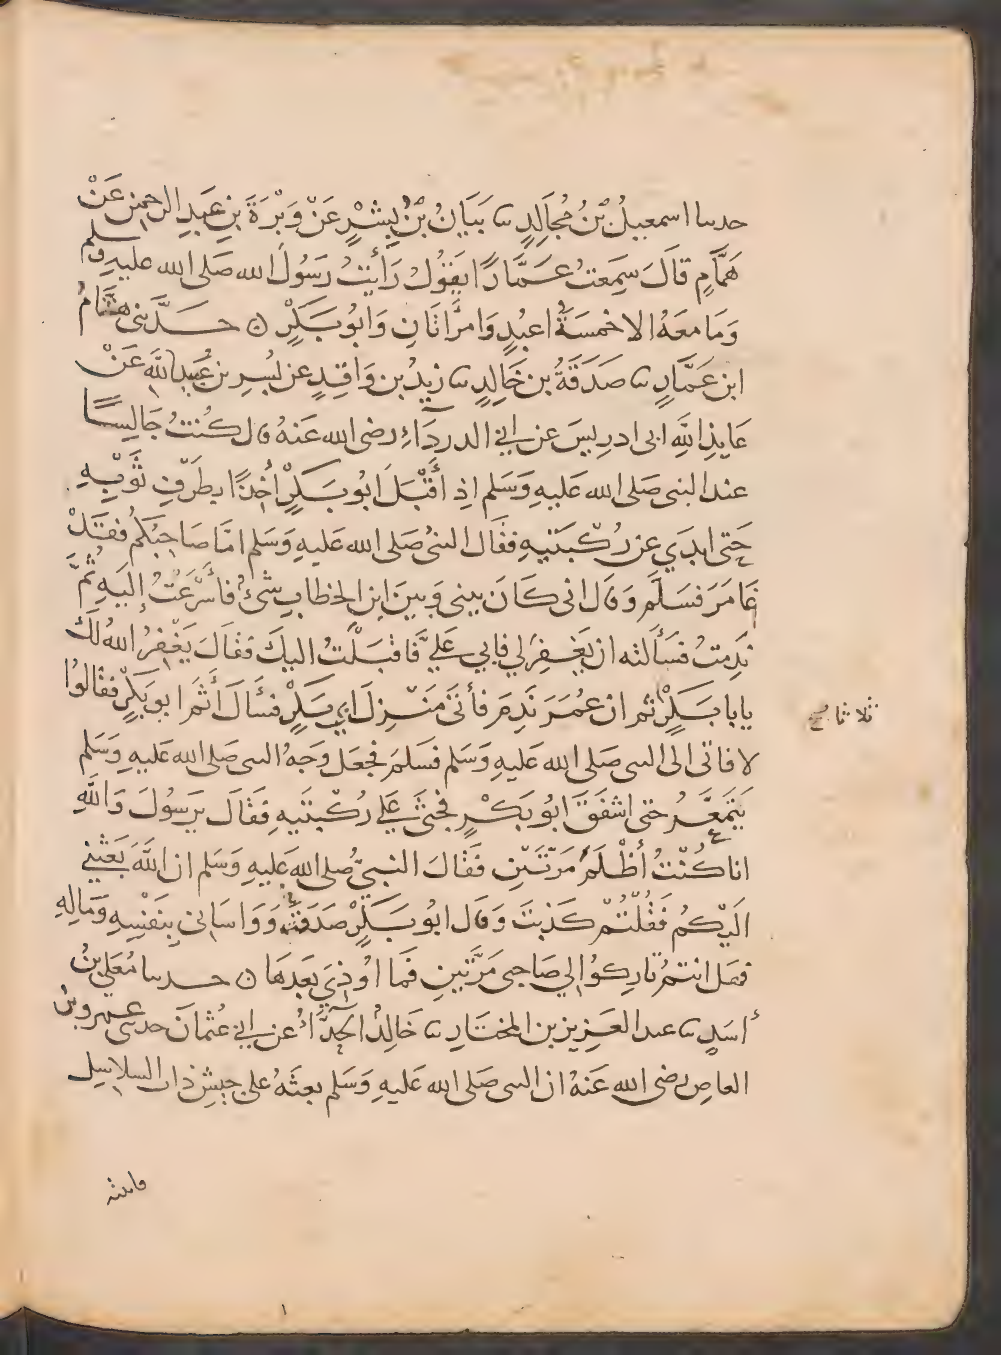 حدثنا اسمعيلُ بْنُ مُجَالِدٍ ثنا بَيَانُ بْنُ بِشْرٍ عَنْ وَبْرَةَ بنِ عَبدِ الرحمنِ عَنْ
هَمَّامٍ قالَ سَمِعتُ عَمَّارًا يَقوُلُ رَأَيتُ رَسُولَ الله صَلى الله عليهِ وسلم
وَمَا مَعَهُ الا خمسَةُ اعبُدٍ وَامرَأتَانِ وَابُو بَكْرٍ ۞ حَدَّثنى هشَامُ
ابن عَمَّارٍ ثنا صَدَقَةُ بن خَالِدٍ ثنا زيدُ بن وَاقِدٍ عن بُسْرِ بن عُبَيدِ اللَّه عَنْ
عَايذِ اللَّهِ ابى ادرِيسَ عن ابي الدردَآءِ رضى الله عَنهُ قال كُنتُ جَالِسًا
عند النبى صَلى الله عَليهِ وَسَلم اذ أَقْبَلَ ابُو بَكْرٍ أخذًا بطَرَفِ ثَوْبِهِ
حَتى ابدَي عن رُكْبَتيهِ فقَال النبىُ صَلى الله عَليهِ وَسَلم امَّا صَاحِبُكُم فقَدْ
غَامَرَ فسَلَّمَ وَقال انى كَانَ بينى وَبينَ ابنِ الخطابِ شَئٌ فأَسْرَعْتُ إليَهِ ثُمَّ
نَدِمتُ فسَأَلته ان يَغفِرَ لي فابي عَلَيَّ فَاقبَلْتُ اليكَ فقَالَ يَغْفِرُ اللهُ لَكَ
يابا بَكْرٍ ثم ان عُمَرَ نَدِمَ فأتَى مَنزِلَ ابي بَكْرٍ فسَأَلَ أَثَمَ ابو بَكْرٍ فقالوُا
ثلاثا صح
لا فاتى الى النبى صَلى الله عَليهِ وَسَلم فسَلمَ فجعَل وَجهُ النبى صَلى الله عَليهِ وَسَلم
يَتَمَعَّرُ حتى اشفَقَ ابُو بَكْرٍ فجَثى عَلى رُكْبتَيهِ فقَالَ يرَسُولَ وَاللَّهِ
انا كُنْتُ أَظْلَمَ مَرَّتَينِ فقَالَ النبيّ صَلى الله عَليهِ وَسَلم ان اللَّهَ بَعَثَنِي
الَيْكُم فَقُلْتُمْ كَذَبتَ وَقال ابُو بَكْرٍ صَدَقَ وَوَاسَانى بِنَفْسِهِ وَمَالِهِ
فهَل انتمُ تَارِكوُا لِي صَاحبى مَرَّتَينِ فمَا اوُذِيَ بَعدهَا ۞ حدثنا مُعَلى بنُ
أسَدٍ ثنا عبد العَزِيز بن المختَارِ ثنا خَالِدُ الحَذَّآءُ عن ابي عُثمَانَ حدثنى عَمرو بن
العاصِ رضى الله عَنهُ ان النبى صَلى الله عَليهِ وَسَلم بعثَهُ على جيشِ ذات السلاسِل
فاتيته